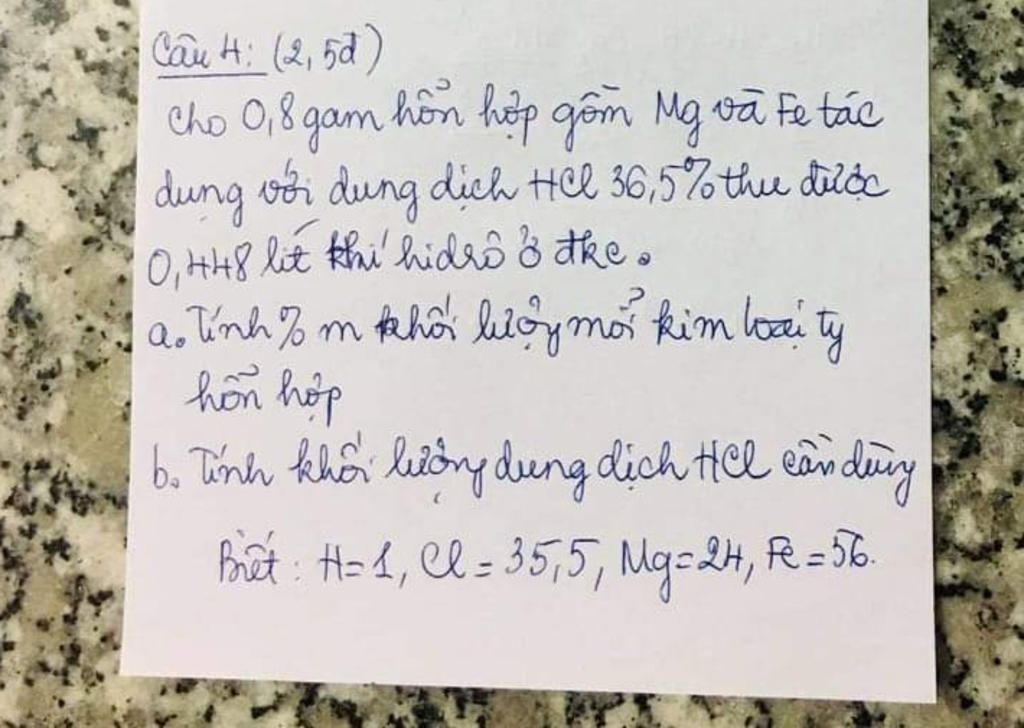 Câu 4: (2,5đ)
Cho 0,8 gam hổn hợp gồm Mg và Fe tác
dụng với dung dịch HCl 36,5% thu được
0,448 lít khí hidrô ở đkc.
a. Tính % m khối lượng mổi kim loại tg
hổn hợp
b. Tính khối lượng dung dịch HCl cần dùng
Biết: H=1, Cl=35,5, Mg=24, Fe=56.